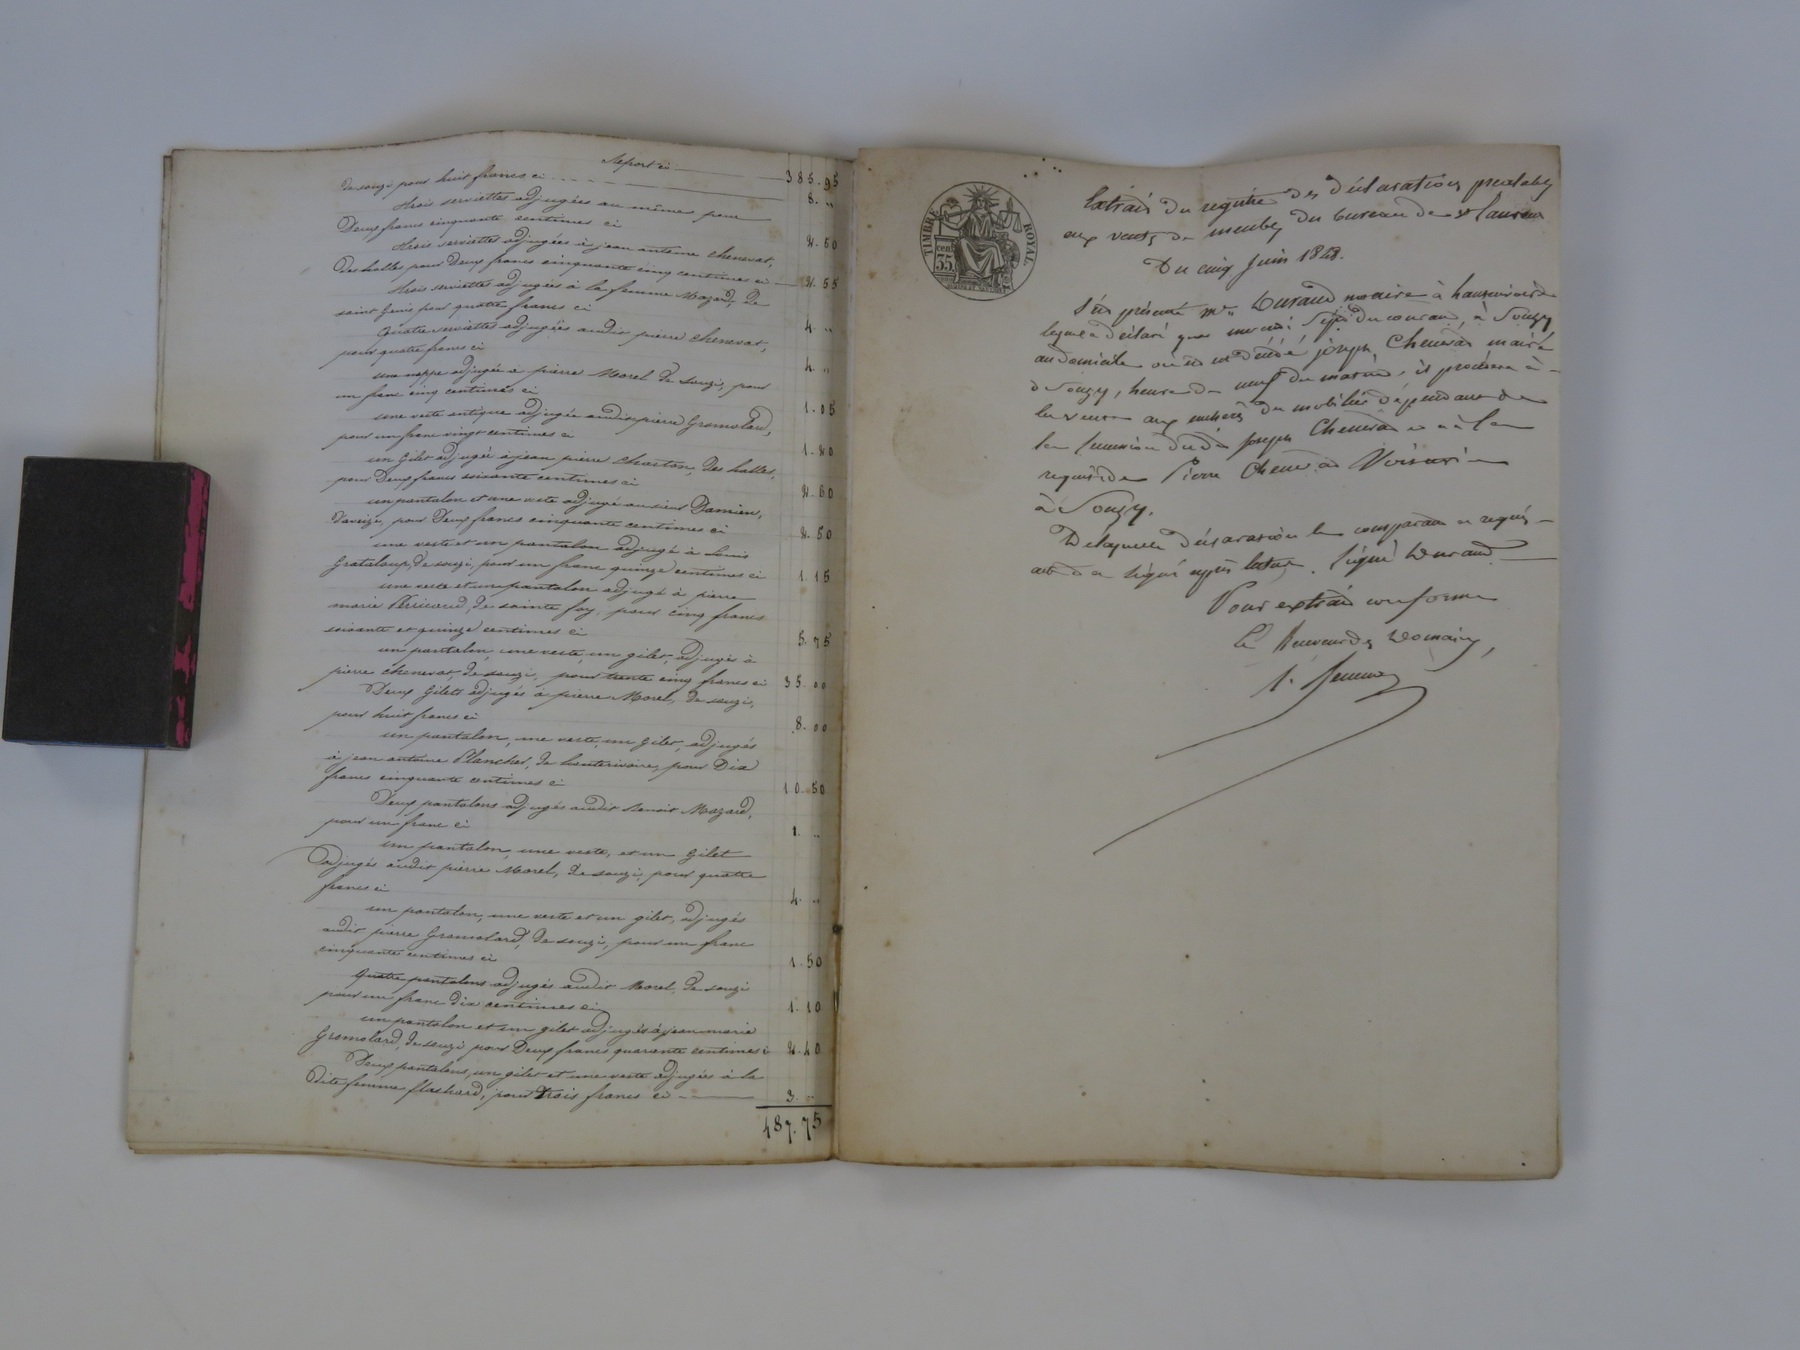 Report ci 385.95
de souzi pour huit francs ci 8. "
trois serviettes adjugées au même pour
Deux francs cinquante centimes ci 2.50
trois serviettes adjugées à jean antoine chenevat,
des halles pour Deux francs cinquante cinq centimes ci 2.55
trois serviettes adjugées à la femme Mazard, de
saint Genis pour quatre francs ci 4. "
Quatre serviettes adjugées audit pierre chenevat,
pour quatre francs ci 4. "
une nappe adjugée à pierre Morel de souzi, pour
un franc cinq centimes ci 1.05
une veste antique adjugée audit pierre Gromolard,
pour un franc vingt centimes ci 1.20
un Gilet adjugé à jean pierre charton, des halles,
pour Deux francs soixante centimes ci 2.60
un pantalon et une veste adjugé au sieur Damien,
Daveize, pour Deux francs cinquante centimes ci 2.50
une veste et un pantalon adjugé à Louis
Grataloup, de souzi, pour un franc quinze centimes ci 1.15
une veste et un pantalon adjugé à pierre
marie Perricaud, de sainte foy, pour cinq francs
soixante et quinze centimes ci 5.75
un pantalon, une veste, un gilet, adjugés à
pierre chenevat, de souzi, pour trente cinq francs ci 35.00
Deux Gilets adjugés à pierre Morel, de souzi,
pour huit francs ci 8.00
un pantalon, une veste, un Gilet, adjugés
à jean antoine Planchet, de hauterivoire, pour Dix
francs cinquante centimes ci 10.50
Deux pantalons adjugés audit Benoit Mazard,
pour un franc ci 1. "
un pantalon, une veste, et un Gilet
adjugés audit pierre Morel, de souzi, pour quatre
francs ci 4. "
un pantalon, une veste et un gilet, adjugés
audit pierre Gromolard, de souzi, pour un franc
cinquante centimes ci 1.50
Quatre pantalons adjugés audit Morel, de souzi
pour un franc dix centimes ci 1.10
un pantalon et un gilet adjugés à jean marie
Gromolard, de souzi pour Deux francs quarante centimes ci 2.40
Deux pantalons, un gilet et une veste adjugés à la
Dite femme flachard, pour trois francs ci 3. "
487.75
TIMBRE ROYAL
35 cent
Extrait du registre des déclarations préalables
aux ventes de meubles du bureau de st Laurent
Du cinq Juin 1848.
S'est présenté Me Durand notaire à hauterivoire
lequel a déclaré que mercredi Sept du courant, à Souzy
au domicile où est décédé joseph Chenevat maire
d Souzy, heure de neuf du matin, il procédera à
la vente aux enchères du mobilier dépendant de
la succession dudit joseph Chenevat et à la
requête de Pierre Chenevat
à Souzy.
De laquelle déclaration le comparant a requis
acte et a signé après lecture. Signé Durand
Pour extrait conforme
Le Receveur des Domaines,